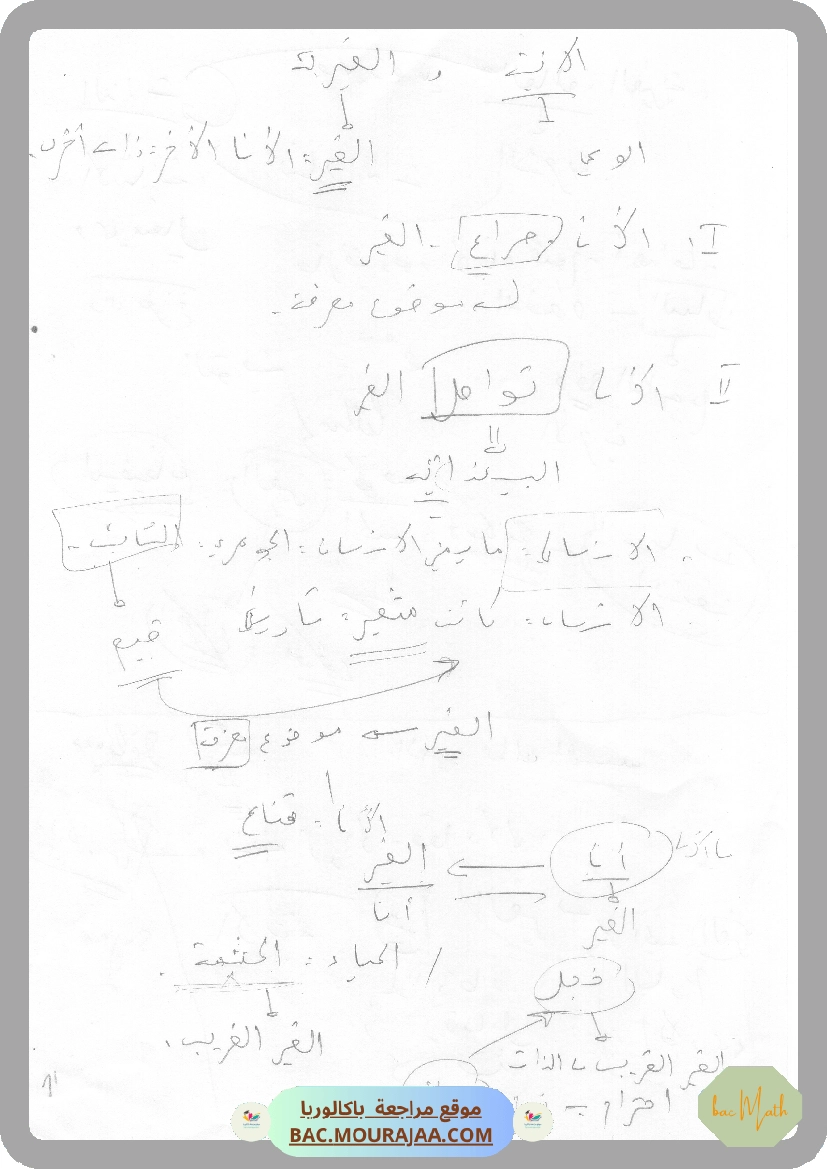 الإنية و الغيرية
الوعي
الغير: الأنا الآخر: ذات أخرى.
I. الأنا صراع - الغير
موضوع معرفة.
II الأنا تواصل الغير
البينذاتية
. الإنساني: ما يميز الإنسان: الجوهري: الثبات.
. الإنسان: كائن متغير: تاريخ
قيم
الغير موضوع معرفة
الأنا - قناع
أنا الغير
أنا
الغير
/ الحياد: الحشمة
خجل
الغير الغريب.
الغير القريب الذات
احترام =
موقع مراجعة باكالوريا
BAC.MOURAJAA.COM
bac Math